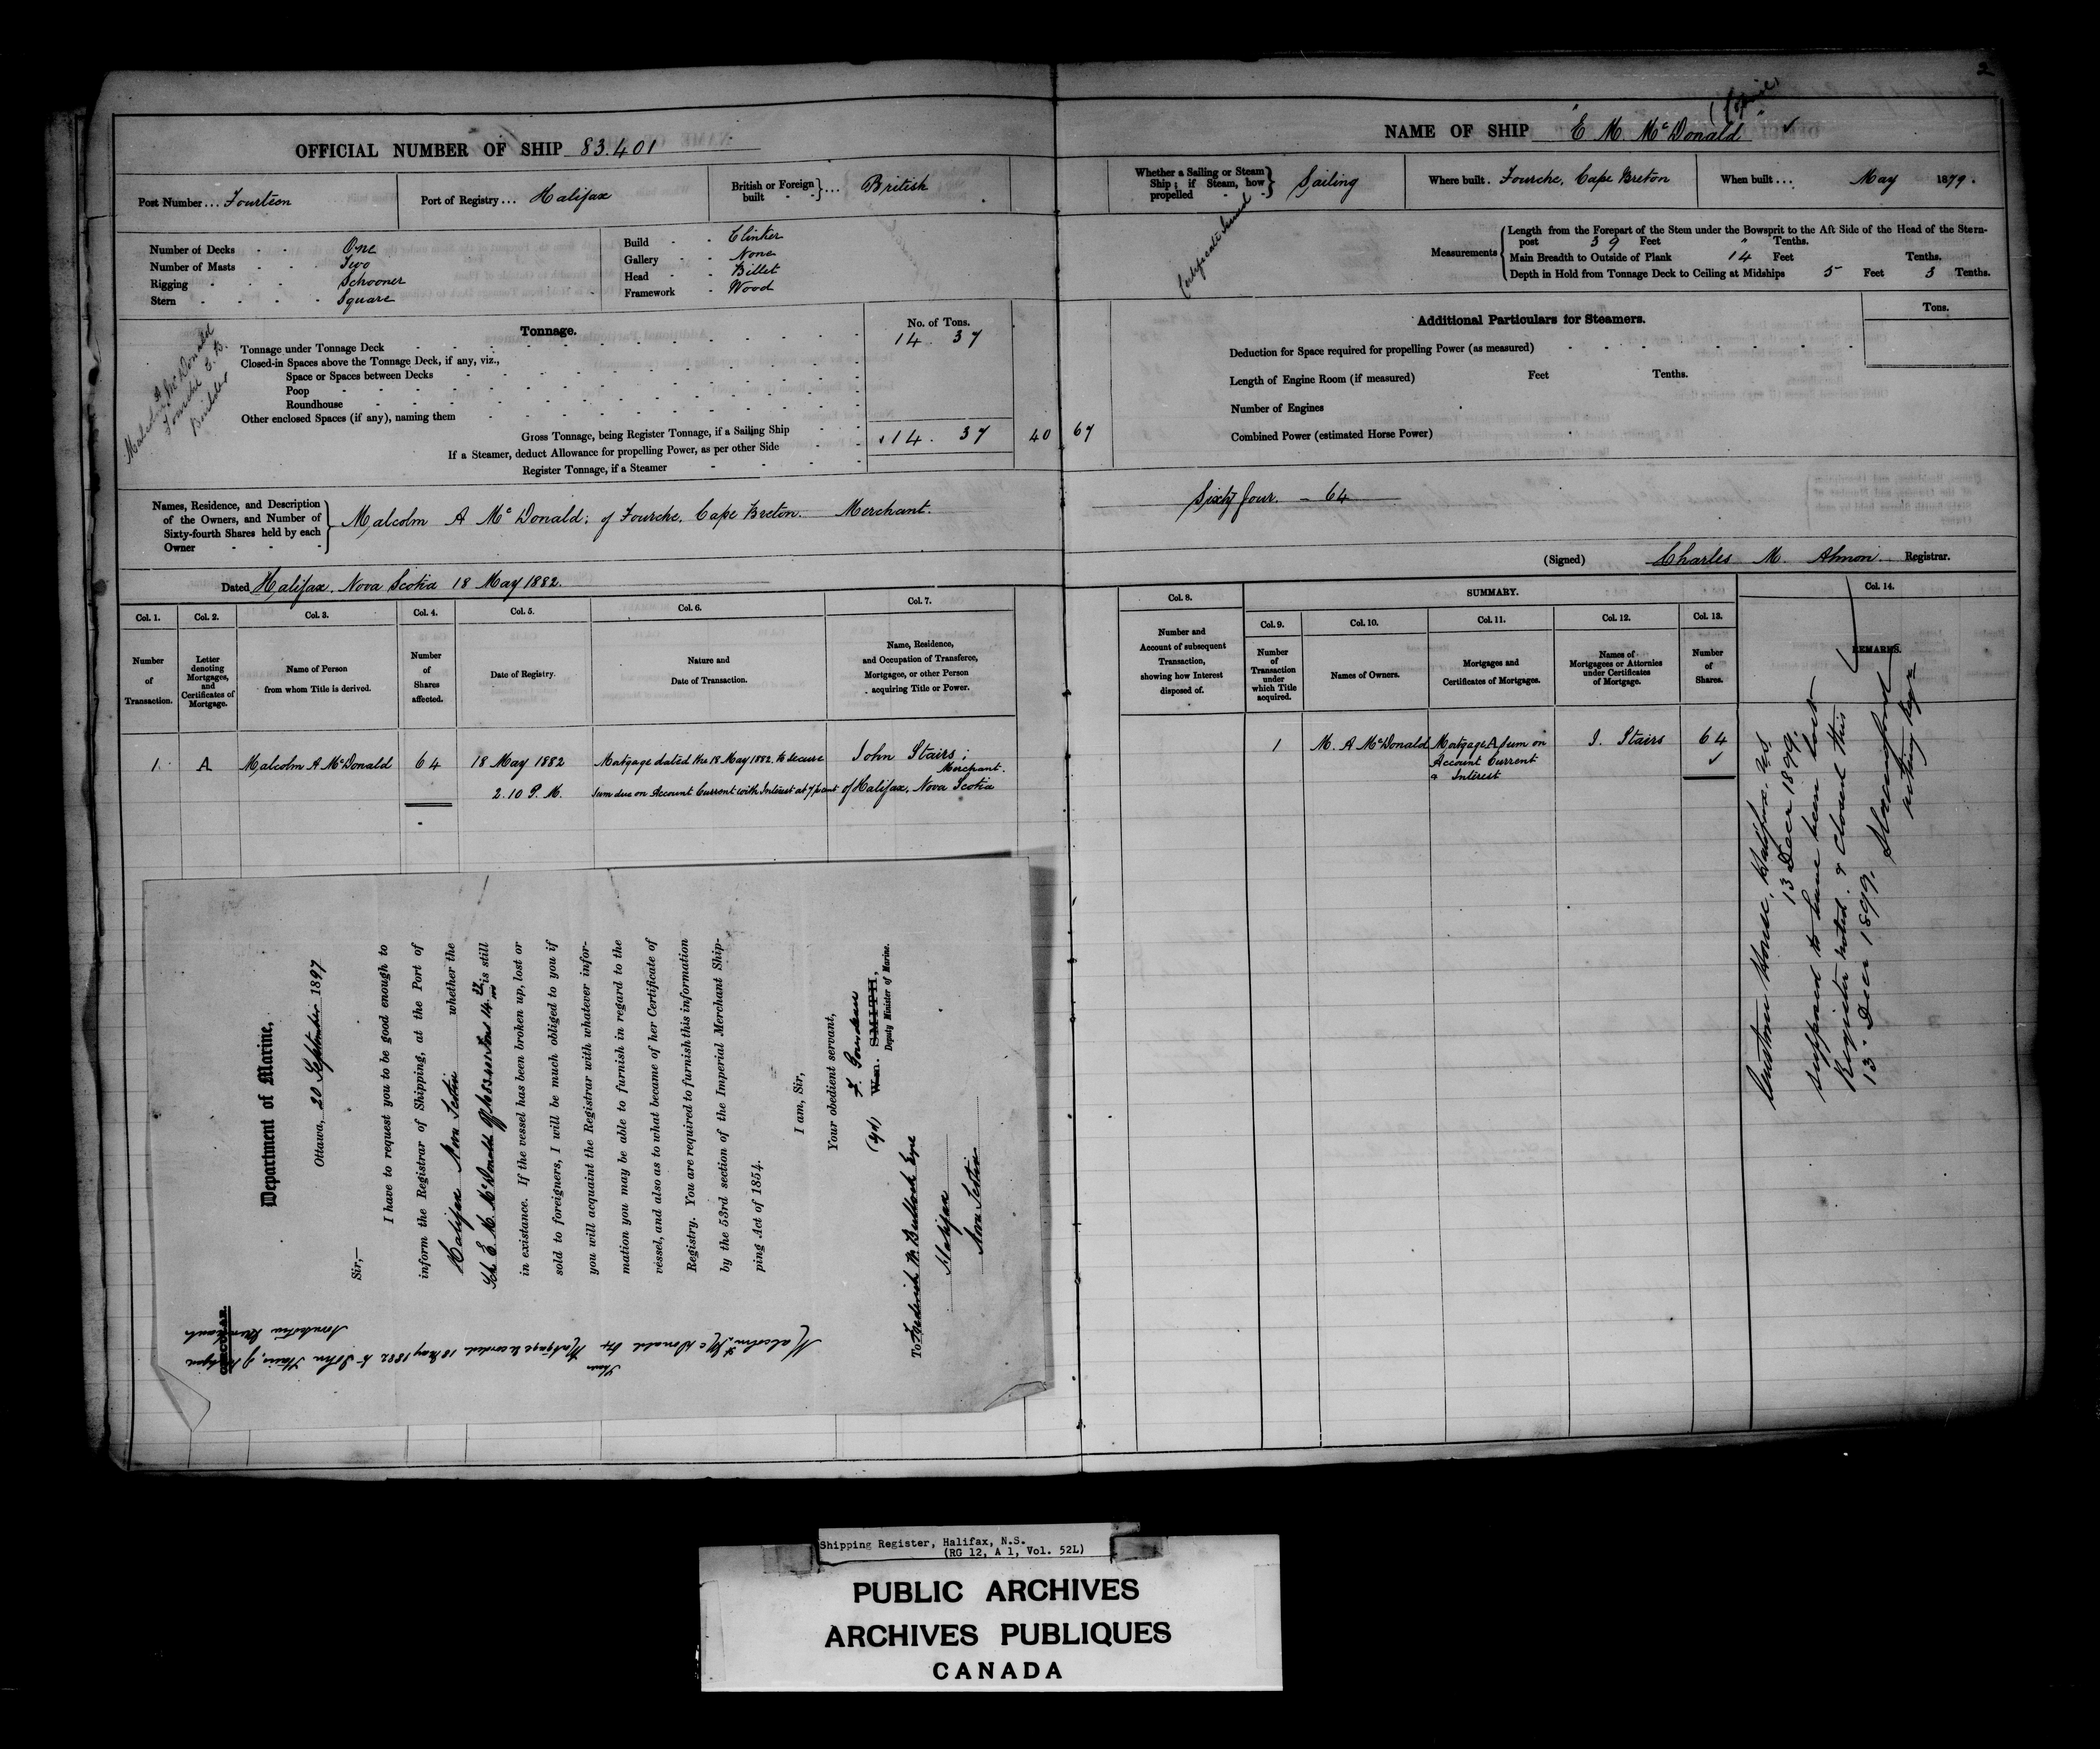 2
OFFICIAL NUMBER OF SHIP 83.401
Post Number ... Fourteen
Port of Registry ... Halifax
British or Foreign built } ... British
Number of Decks - - One
Number of Masts - - Two
Rigging - - - Schooner
Stern - - - - Square
Build - - Clinker
Gallery - - None
Head - - Billet
Framework - Wood
Malcolm A McDonald
Fourche C.B.
Builder
Tonnage.
No. of Tons.
Tonnage under Tonnage Deck 14. 37
Closed-in Spaces above the Tonnage Deck, if any, viz.,
Space or Spaces between Decks
Poop
Roundhouse
Other enclosed Spaces (if any), naming them
Gross Tonnage, being Register Tonnage, if a Sailing Ship 14. 37 40 67
If a Steamer, deduct Allowance for propelling Power, as per other Side
Register Tonnage, if a Steamer
Names, Residence, and Description
of the Owners, and Number of
Sixty-fourth Shares held by each
Owner
Malcolm A McDonald; of Fourche. Cape Breton. Merchant.
Dated Halifax. Nova Scotia 18 May 1882.
Col. 1. Col. 2. Col. 3. Col. 4. Col. 5. Col. 6. Col. 7.
Number of Transaction.
Letter denoting Mortgages, and Certificates of Mortgage.
Name of Person from whom Title is derived.
Number of Shares affected.
Date of Registry.
Nature and Date of Transaction.
Name, Residence, and Occupation of Transferee, Mortgagee, or other Person acquiring Title or Power.
1. A Malcolm A McDonald 64 18 May 1882 Mortgage dated the 18 May 1882. to secure John Stairs;
Merchant.
2.10 P.M. sum due on Account Current with Interest at 7 p cent of Halifax, Nova Scotia
CIRCULAR.
Department of Marine,
Ottawa, 20 September 1897
Sir,—
I have to request you to be good enough to
inform the Registrar of Shipping, at the Port of
Halifax Nova Scotia whether the
Sch E. M. McDonald Off No 83401 Tons 14 37/100 is still
in existance. If the vessel has been broken up, lost or
sold to foreigners, I will be much obliged to you if
you will acquaint the Registrar with whatever infor-
mation you may be able to furnish in regard to the
vessel, and also as to what became of her Certificate of
Registry. You are required to furnish this information
by the 53rd section of the Imperial Merchant Ship-
ping Act of 1854.
I am, Sir,
Your obedient servant,
(sgd) F. Gourdeau
Wm. SMITH,
Deputy Minister of Marine.
To Frederick W. Bullock Esqre
Halifax
Nova Scotia
Malcolm A McDonald
Mortgage recorded 18 May 1882 to John Stairs, of Halifax
Nova Scotia Merchant
NAME OF SHIP "E M. McDonald" ✓
Whether a Sailing or Steam Ship; if Steam, how propelled } Sailing
Where built. Fourche, Cape Breton
When built ... May 1879.
Certificate Issued
Measurements
Length from the Forepart of the Stem under the Bowsprit to the Aft Side of the Head of the Stern-
post 39 Feet " Tenths.
Main Breadth to Outside of Plank 14 Feet Tenths.
Depth in Hold from Tonnage Deck to Ceiling at Midships 5 Feet 3 Tenths.
Additional Particulars for Steamers.
Tons.
Deduction for Space required for propelling Power (as measured)
Length of Engine Room (if measured) Feet Tenths.
Number of Engines
Combined Power (estimated Horse Power)
Sixty four. — 64
(Signed) Charles M. Almon. Registrar.
Col. 8.
SUMMARY.
Col. 14.
Col. 9. Col. 10. Col. 11. Col. 12. Col. 13.
Number and Account of subsequent Transaction, showing how Interest disposed of.
Number of Transaction under which Title acquired.
Names of Owners.
Mortgages and Certificates of Mortgages.
Names of Mortgagees or Attornies under Certificates of Mortgage.
Number of Shares.
REMARKS.
1 M. A McDonald Mortgage A sum on J. Stairs 64
Account Current ✓
& Interest
Custom House, Halifax, N.S.
13 Decr 1899.
supposed to have been lost
Register noted & closed this
13" Decr 1899.
acting Regr
Shipping Register, Halifax, N.S.
(RG 12, A 1, Vol. 52L)
PUBLIC ARCHIVES
ARCHIVES PUBLIQUES
CANADA